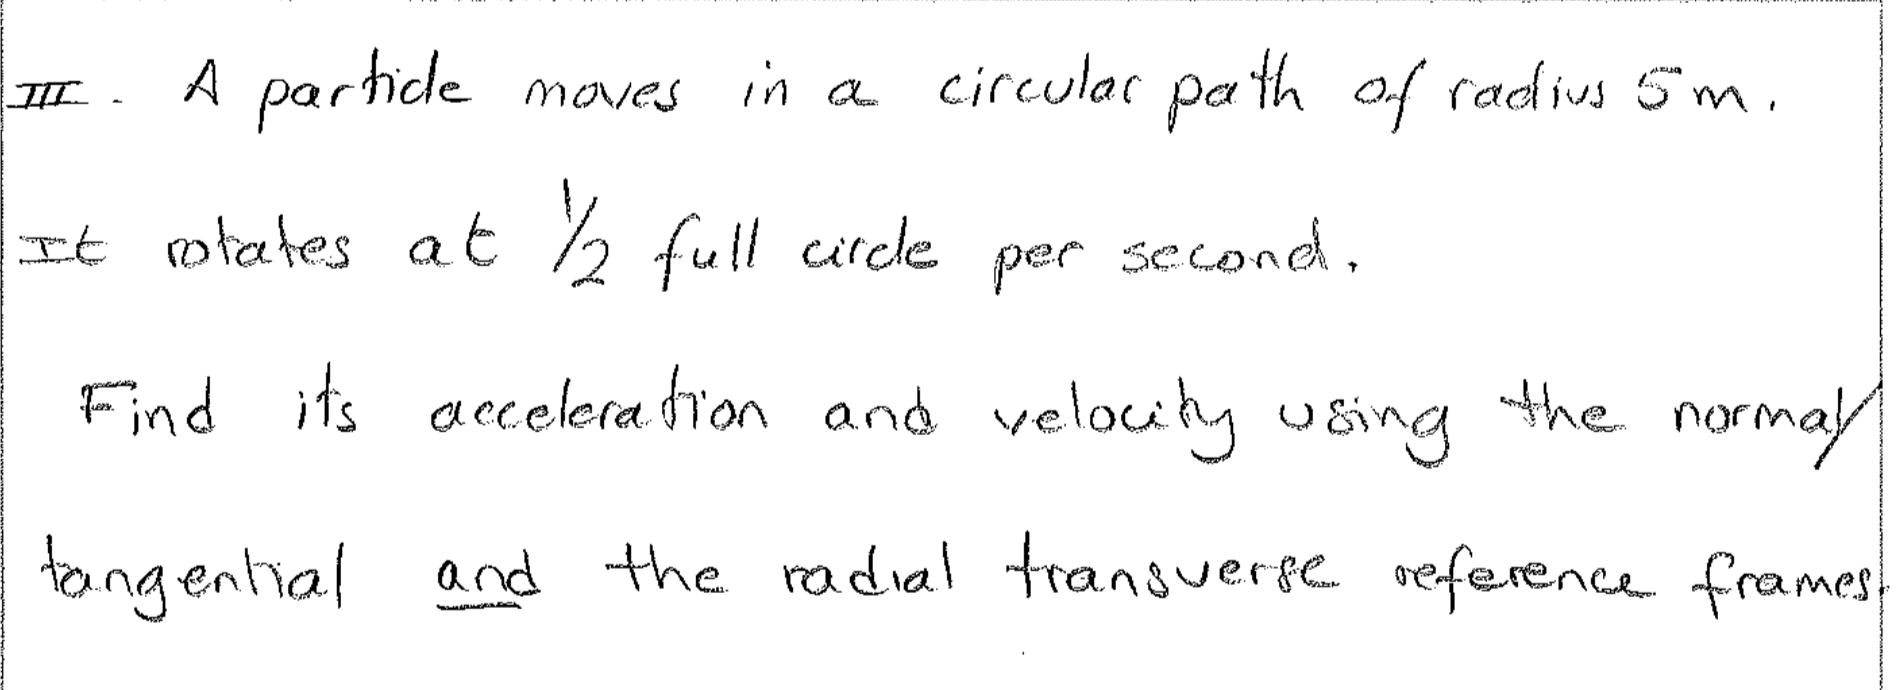 III. A particle moves in a circular path of radius 5m.
It rotates at 1/2 full circle per second.
Find its acceleration and velocity using the normal/
tangential and the radial transverse reference frames.